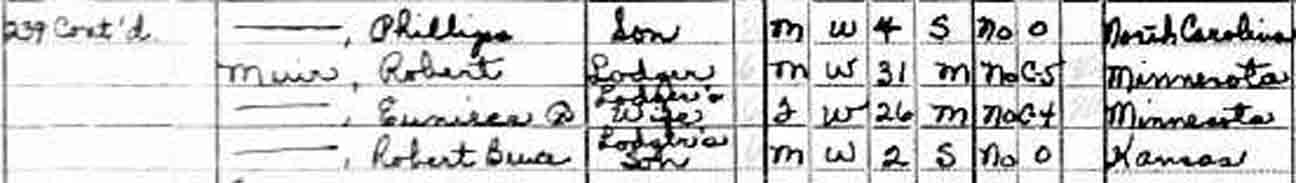 239 Cont'd. ———, Phillips Son M W 4 S No 0 North Carolina
Muir, Robert Lodger M W 31 M No C-5 Minnesota
———, Lodger's Wife F W 26 M No C-4 Minnesota
———, Robert Bruce Lodger's Son M W 2 S No 0 Kansas